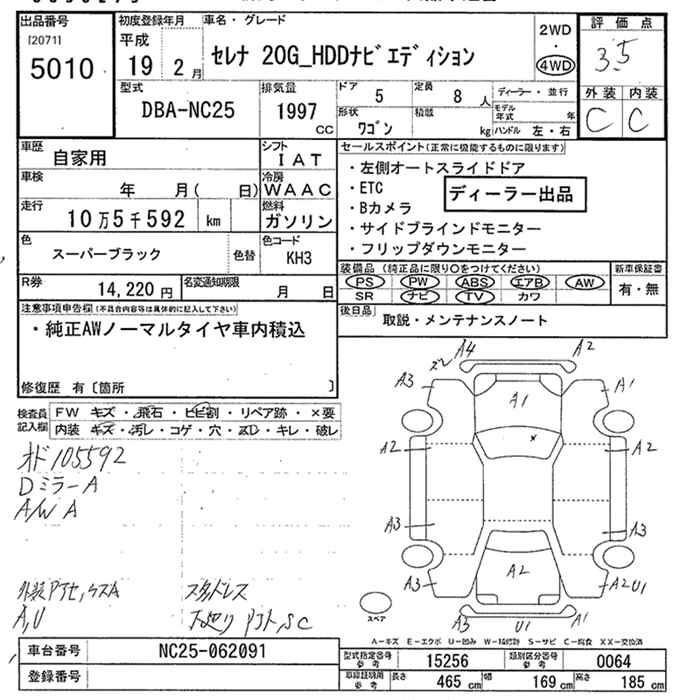 出品番号
[2071]
5010
初度登録年月
平成
19 2 月
車名・グレード
セレナ 20G_HDDナビエディション
2WD
・
4WD
評価点
3.5
外装 内装
C C
型式
DBA-NC25
排気量
1997
CC
ドア
5
定員
8 人
ディーラー・並行
形状
ワゴン
積載
kg
モデル年式 年
ハンドル 左・右
車歴
自家用
シフト
IAT
車検
年 月( 日)
冷房
WAAC
走行
10万5千592 km
燃料
ガソリン
色
スーパーブラック
色替
色コード
KH3
R券
14,220 円
名変通知期限
月 日
セールスポイント(正常に機能するものに限ります)
・左側オートスライドドア
・ETC
・Bカメラ
・サイドブラインドモニター
・フリップダウンモニター
ディーラー出品
装備品(純正品に限り○をつけてください)
PS PW ABS エアB AW
SR ナビ TV カワ
新車保証書
有・無
後日品
取説・メンテナンスノート
注意事項申告欄(不具合内容等は具体的に記入して下さい)
・純正AWノーマルタイヤ車内積込
修復歴 有〔箇所 〕
検査員記入欄
FW キズ・飛石・ヒビ割・リペア跡・×要
内装 キズ・汚レ・コゲ・穴・ヌレ・キレ・破レ
オド 105592
DミラーA
A/W A
A,U
スタッドレス
ズレ A4 A2
A3 A1 A1
A2 × A2
A3 A3
A3 A2 A2 U1
A3 U1 A1
スペア
A-キズ E-エクボ U-凹み W-補修跡 S-サビ C-腐食 XX-交換済
車台番号
NC25-062091
登録番号
型式指定番号 参考
15256
類別区分番号 参考
0064
車庫証明用 参考
長さ 465 cm
幅 169 cm
高さ 185 cm